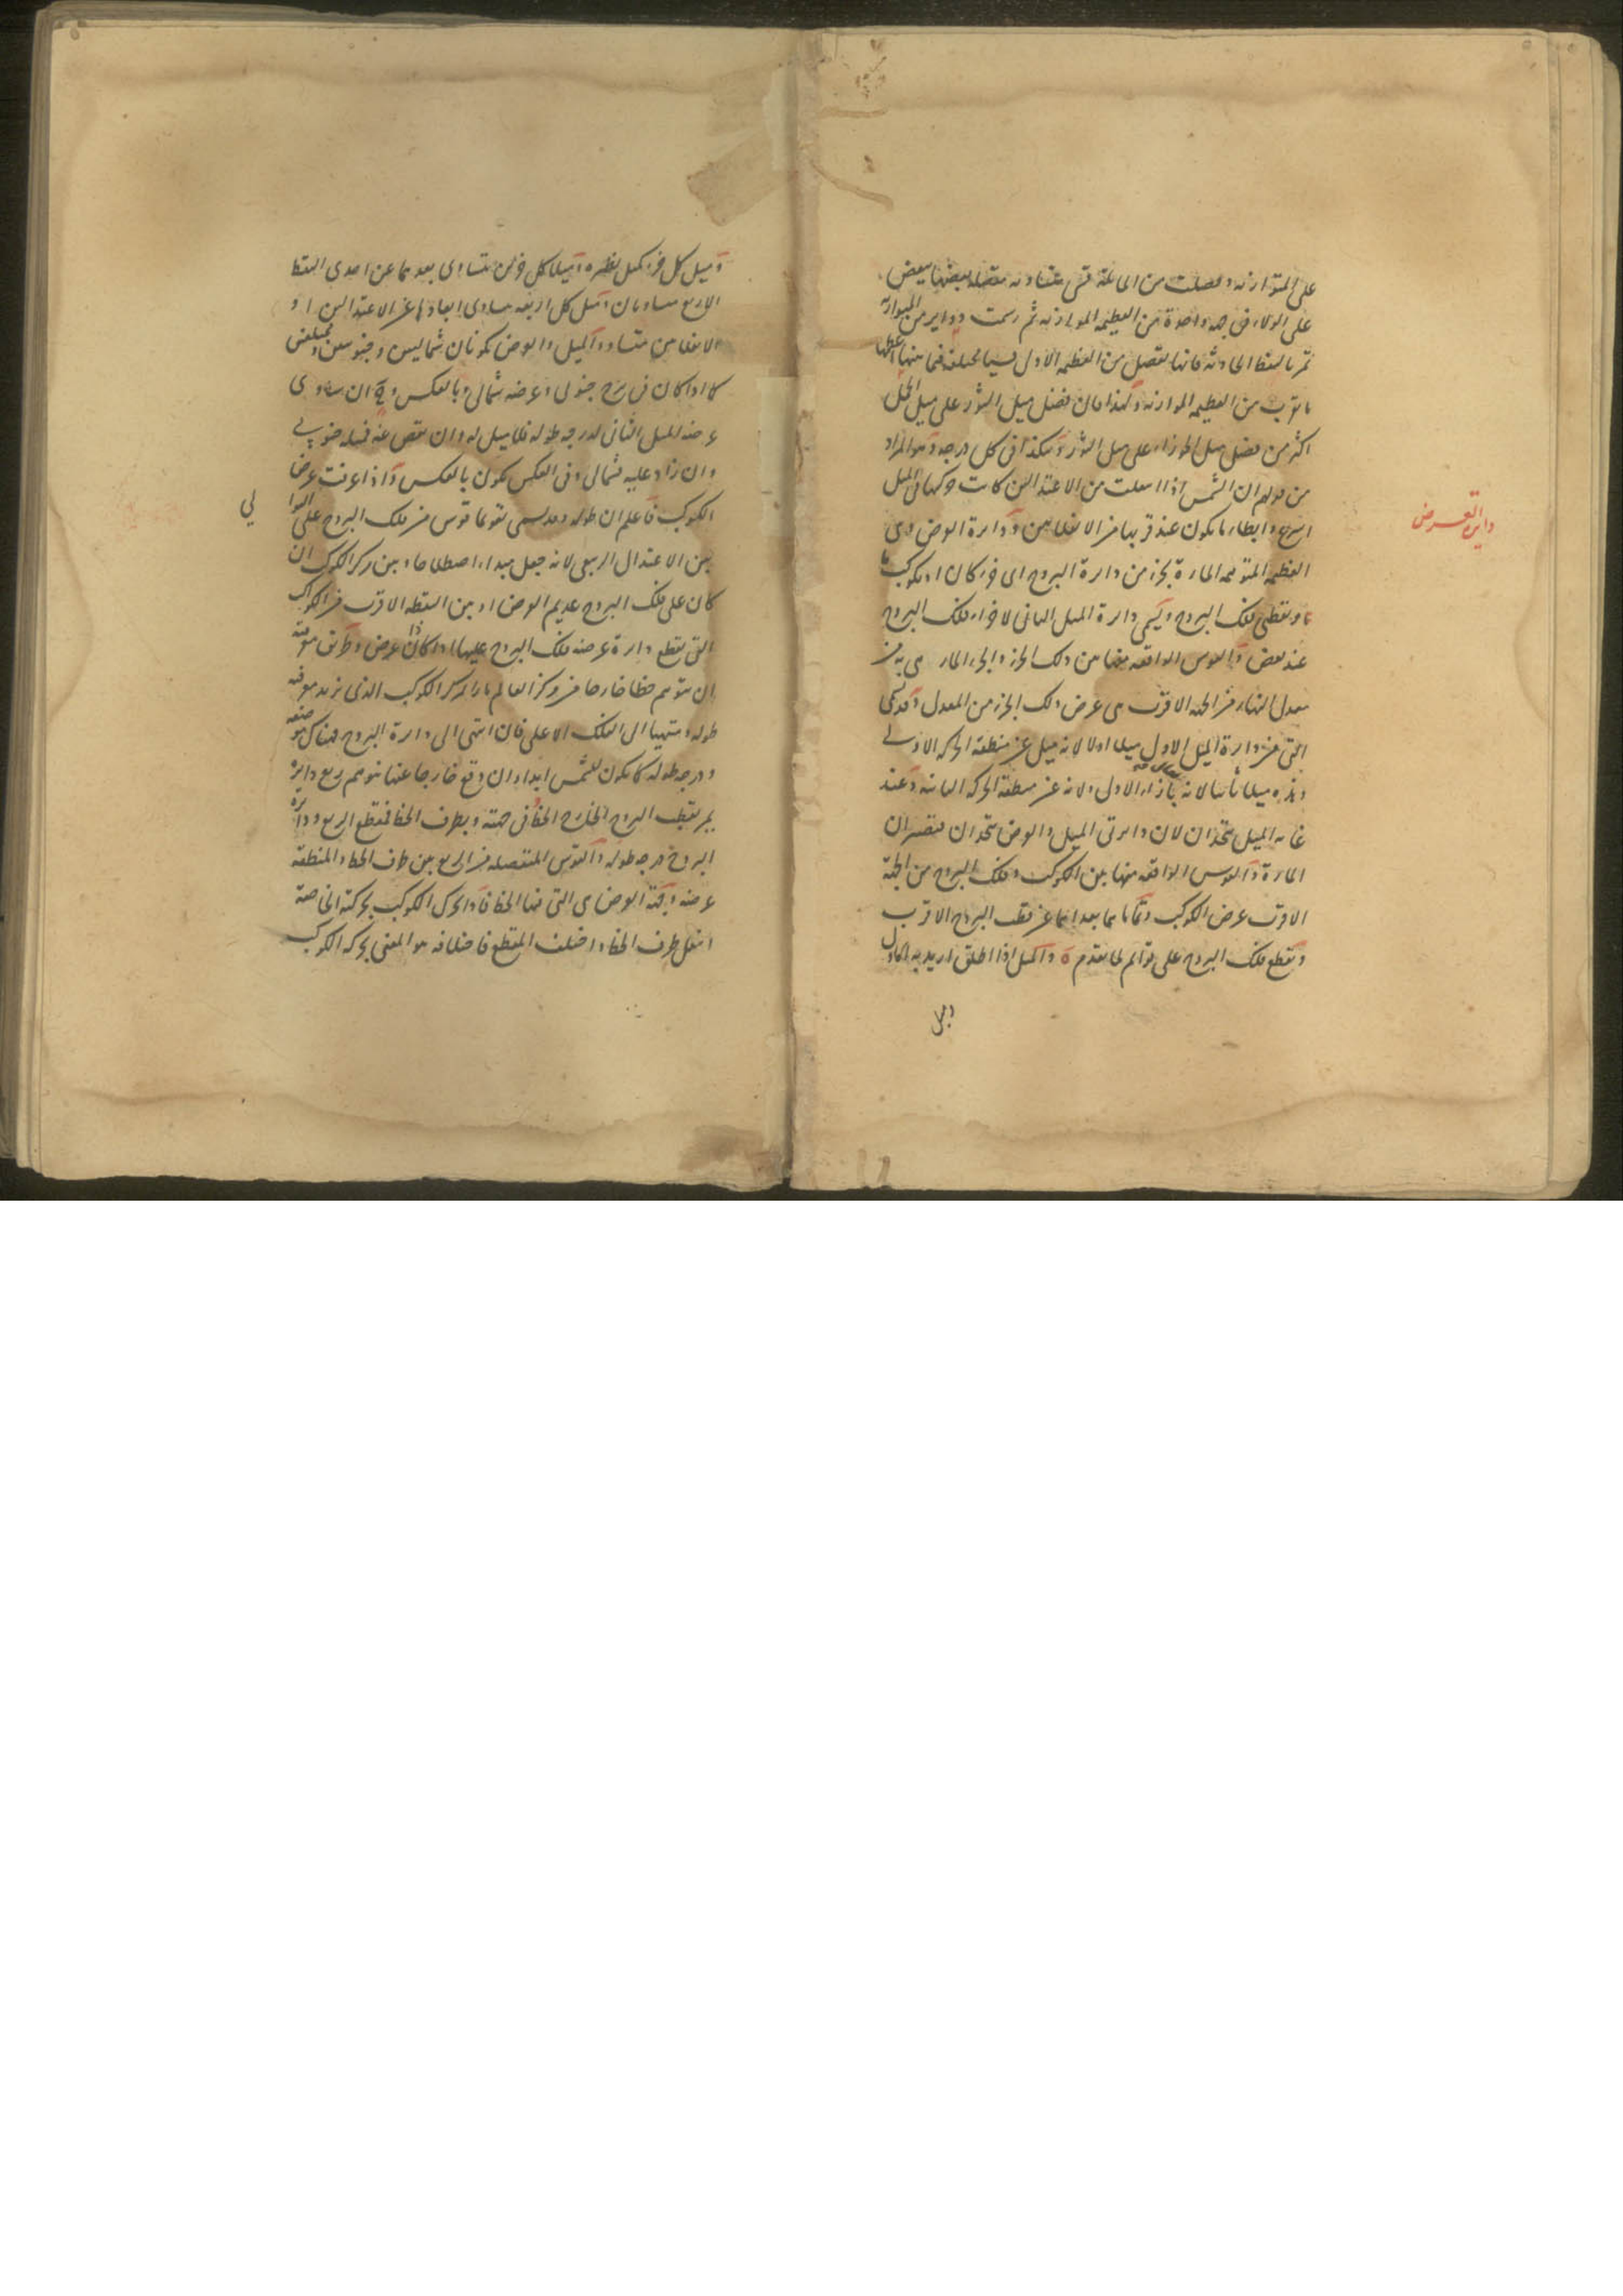 على المتوازنه وفصلت من المائلة قسى متساويه متصلة بعضها ببعض
على الولاء فى جهة واحدة من العظيمة الموازنه ثم رسمت دواير من المتوازنه
تمر بالنقط الحادثه فانها تفصل من العظيمة الاولى قسيا مختلفة فما منها اعظمها
ما تقرب من العظيمة الموازنه ولهذا كان فضل ميل الثور على ميل الحمل
اكثر من فضل ميل الجوزاء على ميل الثور وهكذا فى كل درجه وهو المراد
من قولهم ان الشمس اذا انتقلت من الاعتدالين كانت حركتها فى الميل
اسرع وابطا ما يكون عند قربها من الانقلابين ودايرة العرض وهى
العظيمة المتوهمه المارة بجزء من دايرة البروج اى جزء كان او بكوكب ما
وبقطبى فلك البروج ويسمى دايرة الميل الثانى لاجزاء فلك البروج
عند بعض والقوس الواقعه منها بين ذلك الجزء والجزء المار هى به من
معدل النهار من الجهة الاقرب هى عرض ذلك الجزء من المعدل وقد يسمى
التى من دايرة الميل الاول ميلا اولا لانه ميل عن منطقة الحركه الاولى
وهذه ميلا ثانيا لانه بازاء الاول ولانه عن منطقة الحركه الثانيه وعند
غاية الميل يتحدان لان دايرتى الميل والعرض يتحدان فتصيران
المارة والقوس الواقعه منها بين الكوكب وفلك البروج من الجهة
الاقرب عرض الكوكب وتمامها بعدهما عن قطب البروج الاقرب
وتقطع فلك البروج على قوائم لما تقدم ه والميل اذا اطلق اريد به الاول
وميل
دايرة العرض
وميل كل جزء كميل نظيره وميلا كل جزئين متساوى بعدهما عن احدى النقط
الاربع متساويان وميل كل اربعه متساوى ابعادها عن الاعتدالين او
الانقلابين متساو والميل والعرض يكونان شماليين وجنوبيين ومختلفين
كما اذا كان فى برج جنوبى وعرضه شمالى وبالعكس وح ان ساوى
عرضه الميل الثانى لدرجه طوله فلا ميل له وان نقص عنه فميله جنوبى
وان زاد عليه فشمالى وفى العكس يكون بالعكس واذا عرفت عرض
الكوكب فاعلم ان طوله وقد يسمى تقويما قوس من فلك البروج على التوالى
بين الاعتدال الربيعى لانه جعل مبداء اصطلاحا وبين مركز الكوكب ان
كان على فلك البروج عديم العرض او بين النقطه الاقرب من الكواكب
التى يقطع دايرة عرضه فلك البروج عليها اذا كان ذا عرض وطريق معرفته
ان نتوهم خطا خارجا من مركز العالم مارا بمركز الكوكب الذى نريد معرفة
طوله ومنتهيا الى الفلك الاعلى فان انتهى الى دايرة البروج فهناك موضعه
ودرجه طوله كما يكون للشمس ابدا وان وقع خارجا عنها نتوهم ربع دايرة
يمر بقطب البروج الخارج الخط فى جهته وبطرف الخط فتقطع الربع ودايرة
البروج درجه طوله والقوس المنفصله من الربع بين طرف الخط والمنطقه
عرضه وجهة العرض هى التى فيها الخط فاذا تحرك الكوكب بحركته الخاصة
انتقل طرف الخط واختلف التقطع فاختلافه هو المعنى بحركه الكوكب